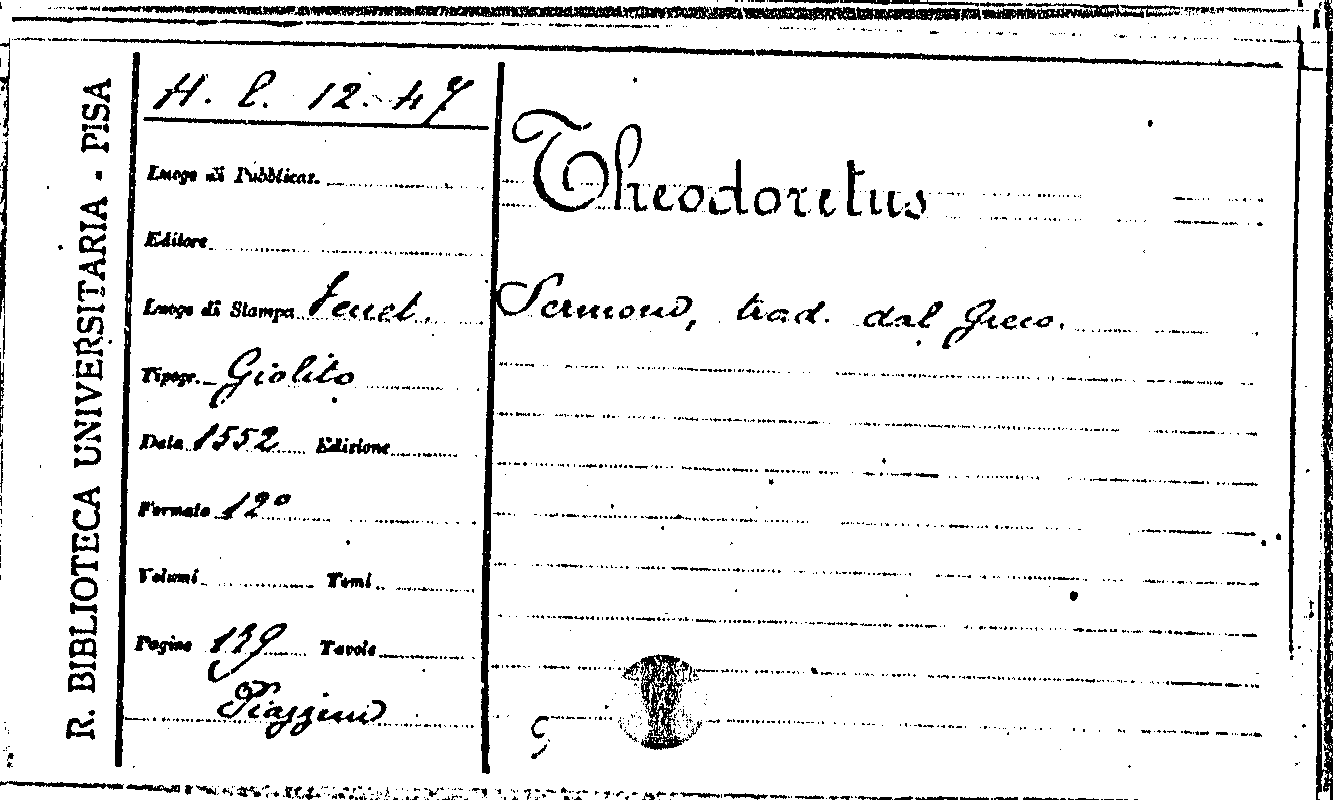 R. BIBLIOTECA UNIVERSITARIA - PISA
H. l. 12. 47
Luogo di Pubblicaz.
Editore
Luogo di Stampa Venet.
Tipogr. Giolito
Data 1552 Edizione
Formato 12°
Volumi Tomi
Pagine 139 Tavole
Piaggini
Theodoretus
Sermoni, trad. dal Greco.